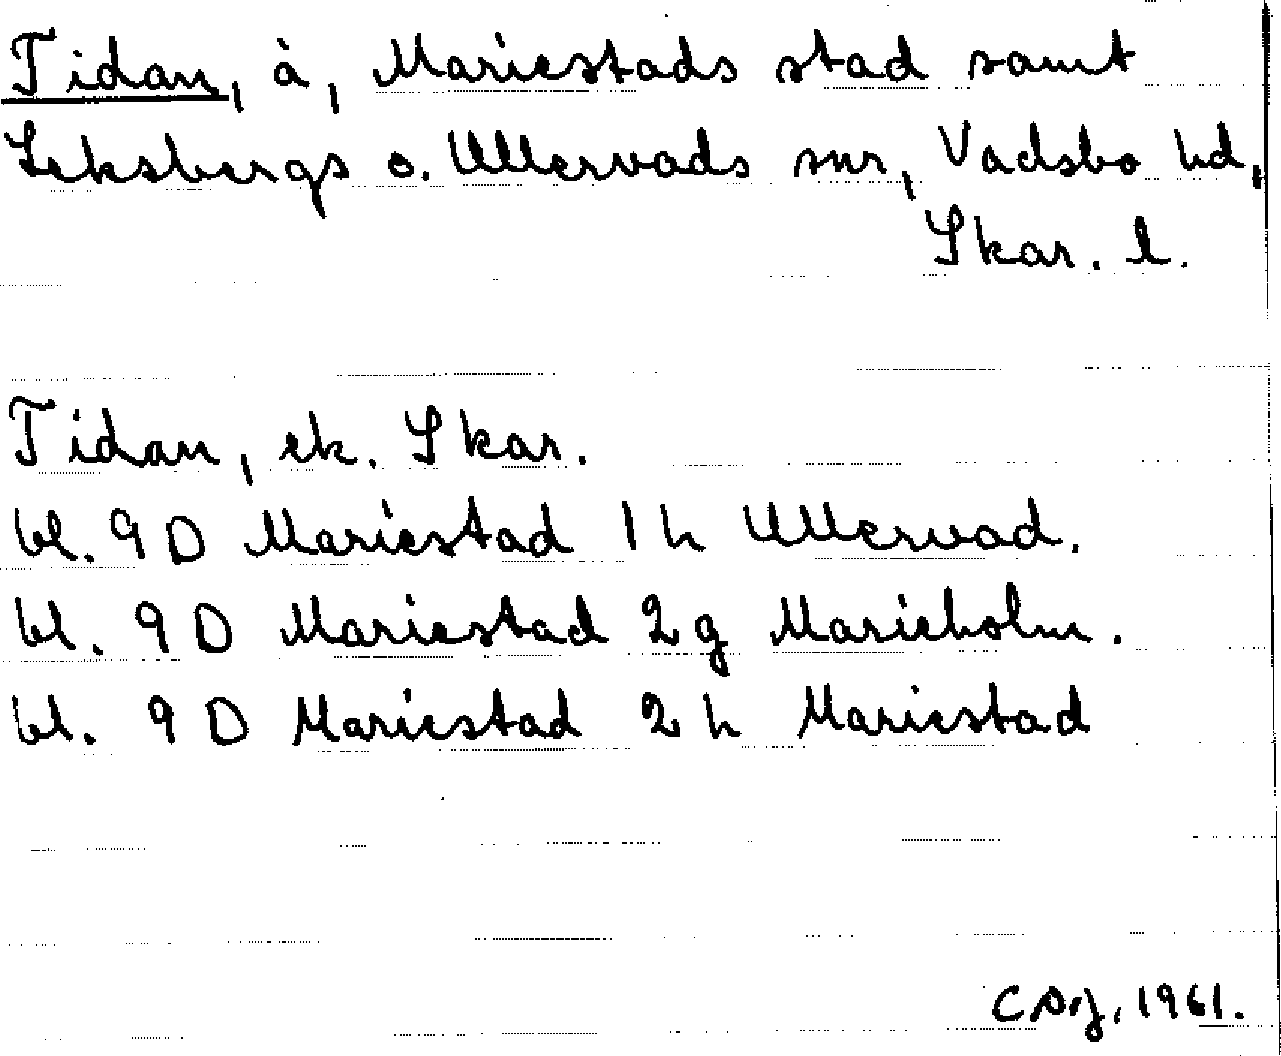 Tidan, å, Mariestads stad samt
Leksbergs o. Ullervads snr, Vadsbo hd,
Skar. l.
Tidan, ek. Skar.
bl. 9 D Mariestad 1 h Ullervad.
bl. 9 D Mariestad 2 g Marieholm.
bl. 9 D Mariestad 2 h Mariestad
1961.